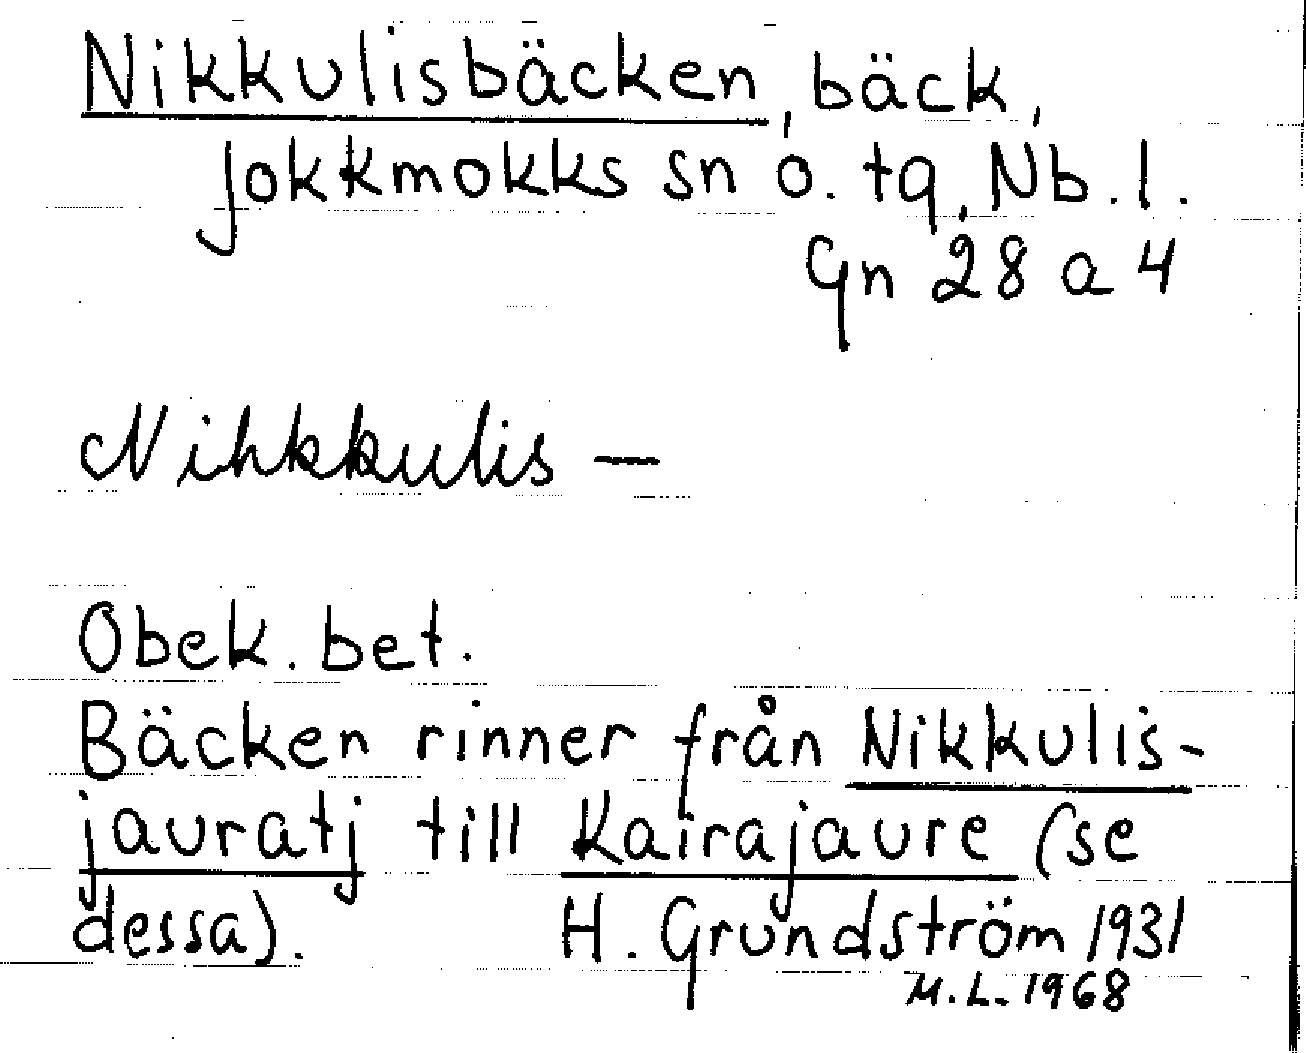 Nikkulisbäcken, bäck,
Jokkmokks sn o. tg, Nb. l.
Gn 28 a 4
Nihkkulis —
Obek. bet.
Bäcken rinner från Nikkulis-
jauratj till Kairajaure (se
dessa). H. Grundström 1931
M.L. 1968